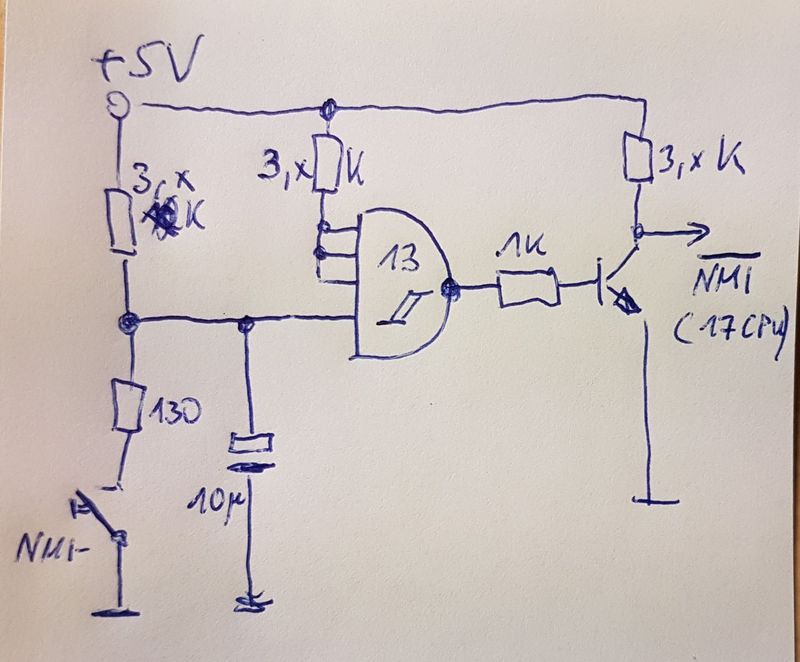 +5V
3,x
K
3,x K
3,x K
13
1K
NMI
(17CPU)
130
10µ
NMI-